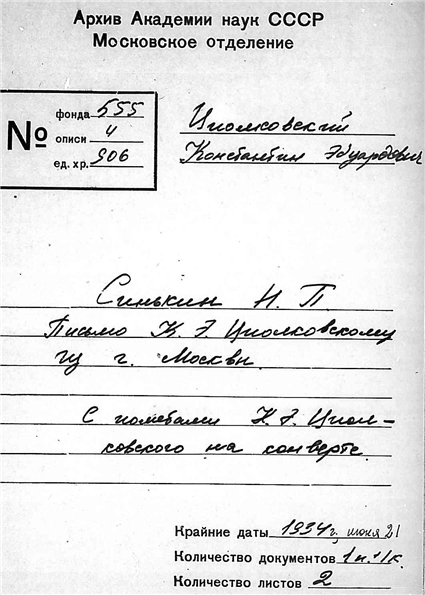 Архив Академии наук СССР
Московское отделение
№
фонда 555
описи 4
ед. хр. 906
Циолковский
Константин Эдуардович
Синькин Н. П
Письмо К. Э. Циолковскому
из г. Москвы.
С пометами К. Э. Циол-
ковского на конверте.
Крайние даты 1934 г, июня 21
Количество документов 1п.+1к.
Количество листов 2